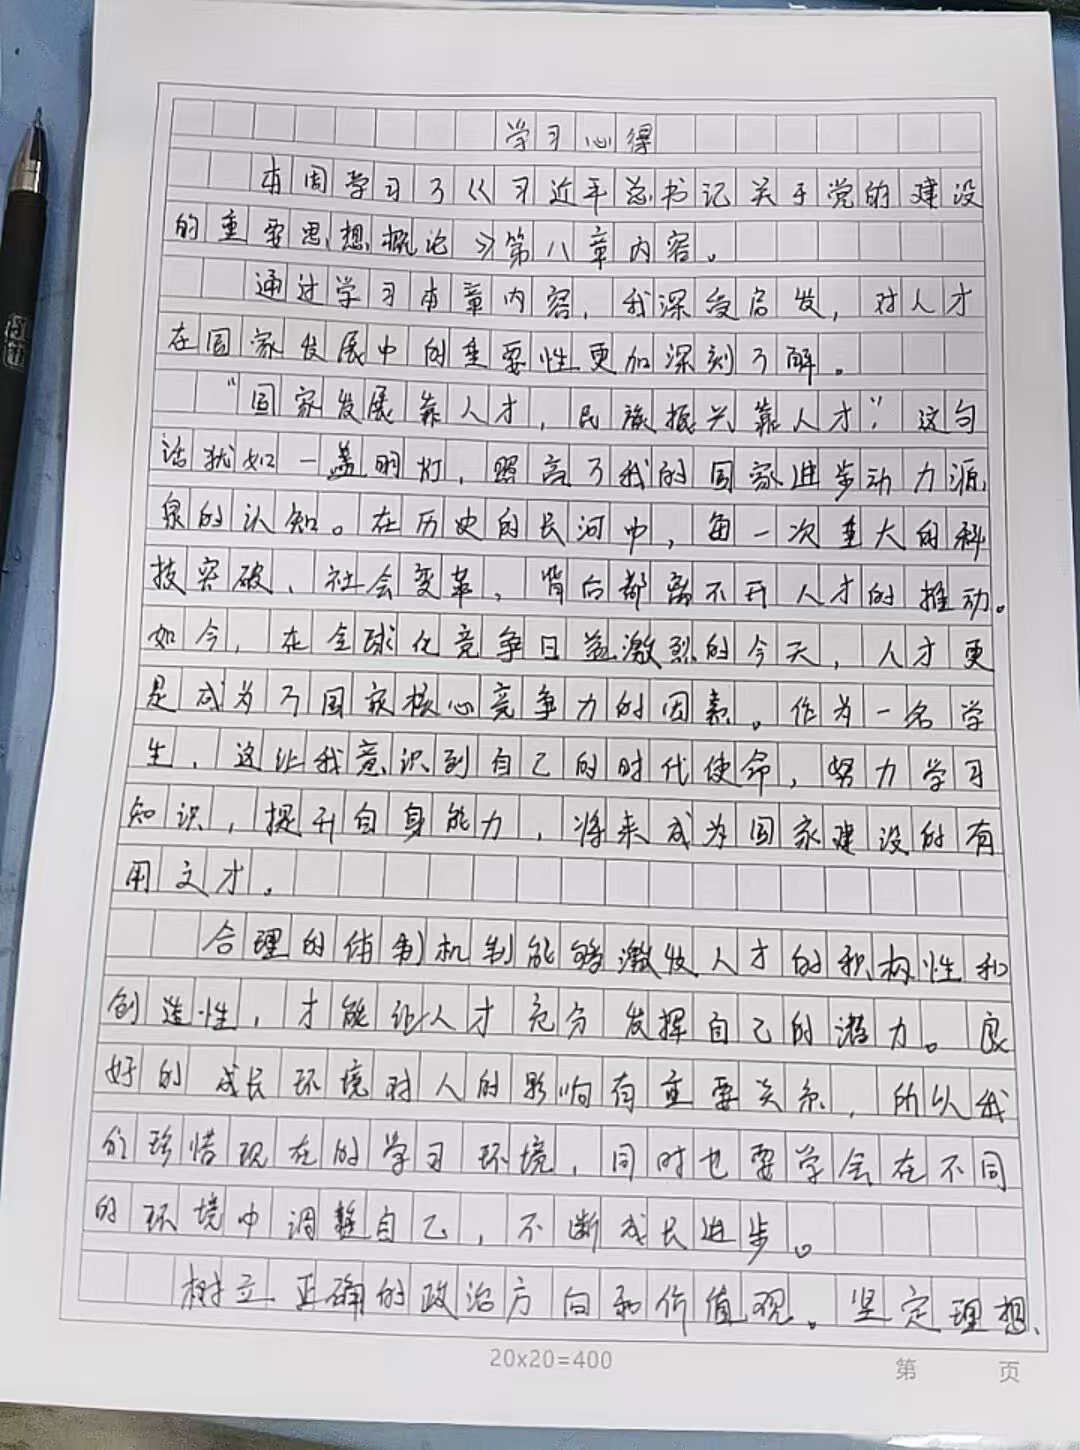 学习心得
本周学习了《习近平总书记关于党的建设
的重要思想概论》第八章内容。
通过学习本章内容，我深受启发，对人才
在国家发展中的重要性更加深刻了解。
“国家发展靠人才，民族振兴靠人才”，这句
话犹如一盏明灯，照亮了我的国家进步动力源
泉的认知。在历史的长河中，每一次重大的科
技突破、社会变革，背后都离不开人才的推动。
如今，在全球化竞争日益激烈的今天，人才更
是成为了国家核心竞争力的因素。作为一名学
生，这让我意识到自己的时代使命，努力学习
知识，提升自身能力，将来成为国家建设的有
用文才。
合理的体制机制能够激发人才的积极性和
创造性，才能让人才充分发挥自己的潜力。良
好的成长环境对人的影响有重要关系，所以我
们珍惜现在的学习环境，同时也要学会在不同
的环境中调整自己，不断成长进步。
树立正确的政治方向和价值观。坚定理想、
20x20=400
第 页